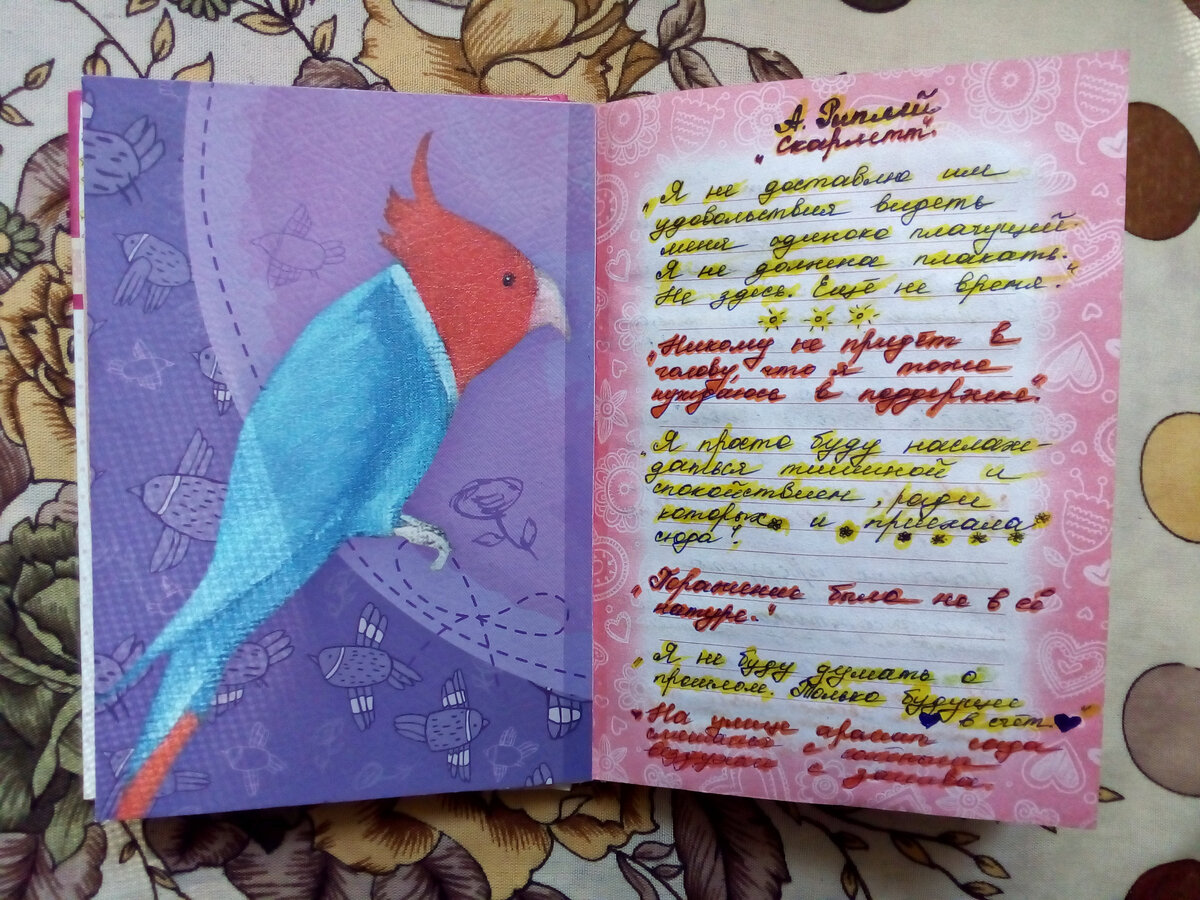 А. Риплей
"Скарлетт".
"Я не доставлю им
удовольствия видеть
меня одиноко плачущей.
Я не должна плакать.
Не здесь. Еще не время."
"Никому не придёт в
голову, что я тоже
нуждаюсь в поддержке".
"Я просто буду наслаж-
даться тишиной и
спокойствием, ради
которых и приехала
сюда!
"Поражение было не в её
натуре."
"Я не буду думать о
прошлом. Только будущее
в счет."
На улице аромат сада
смешался с
воздухом с